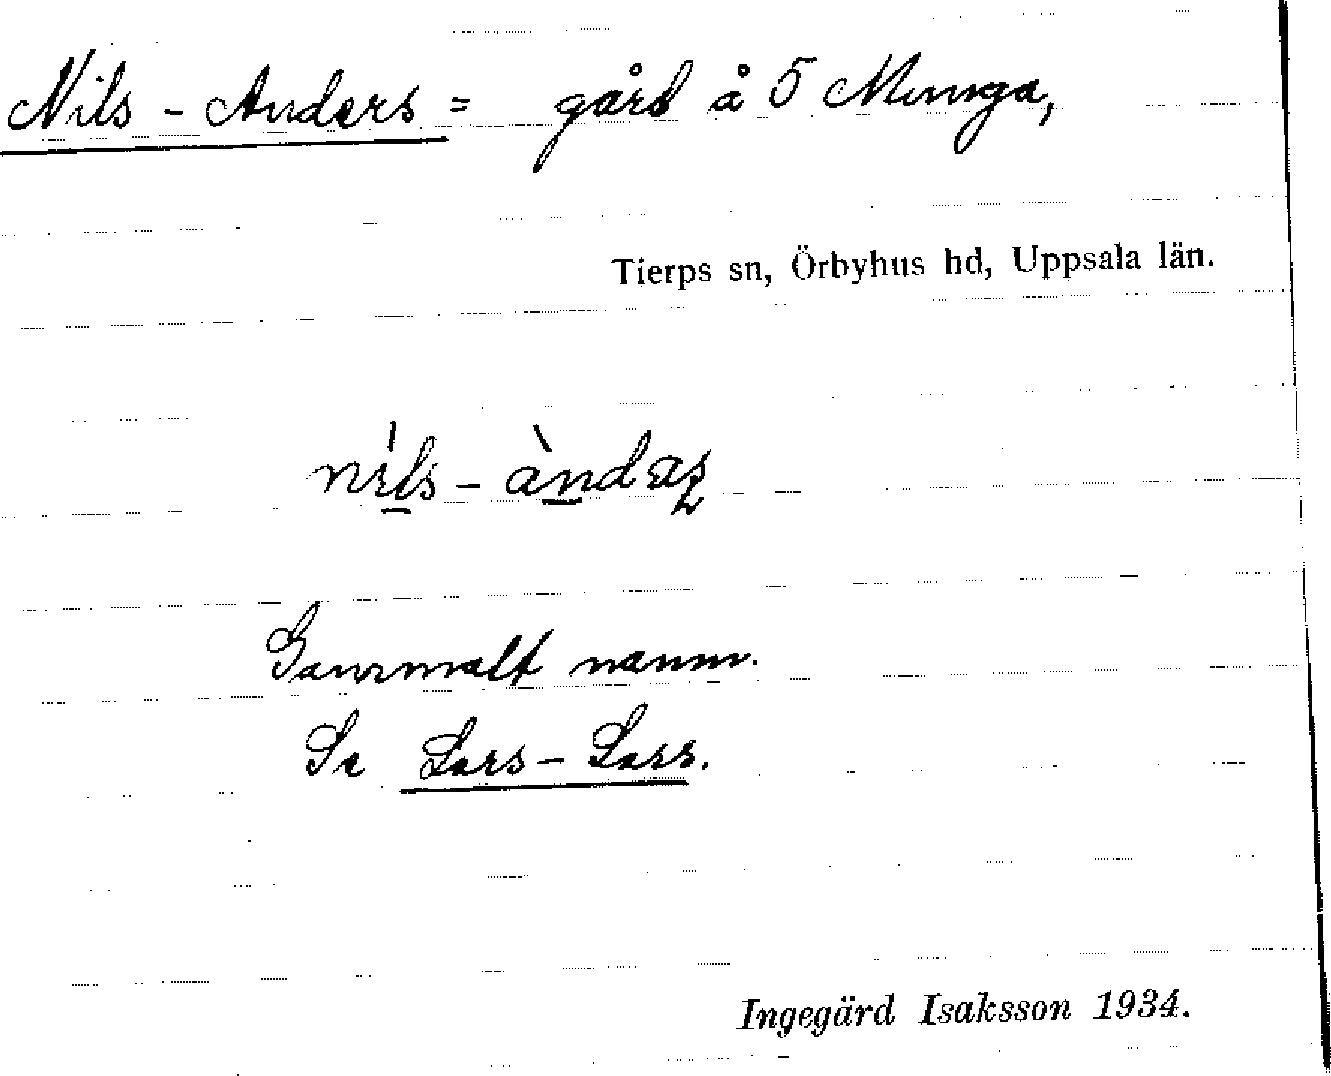 Nils-Anders = gård å 5 Munga,
Tierps sn, Örbyhus hd, Uppsala län.
Gammalt namn.
Se Lars-Lars.
Ingegärd Isaksson 1934.